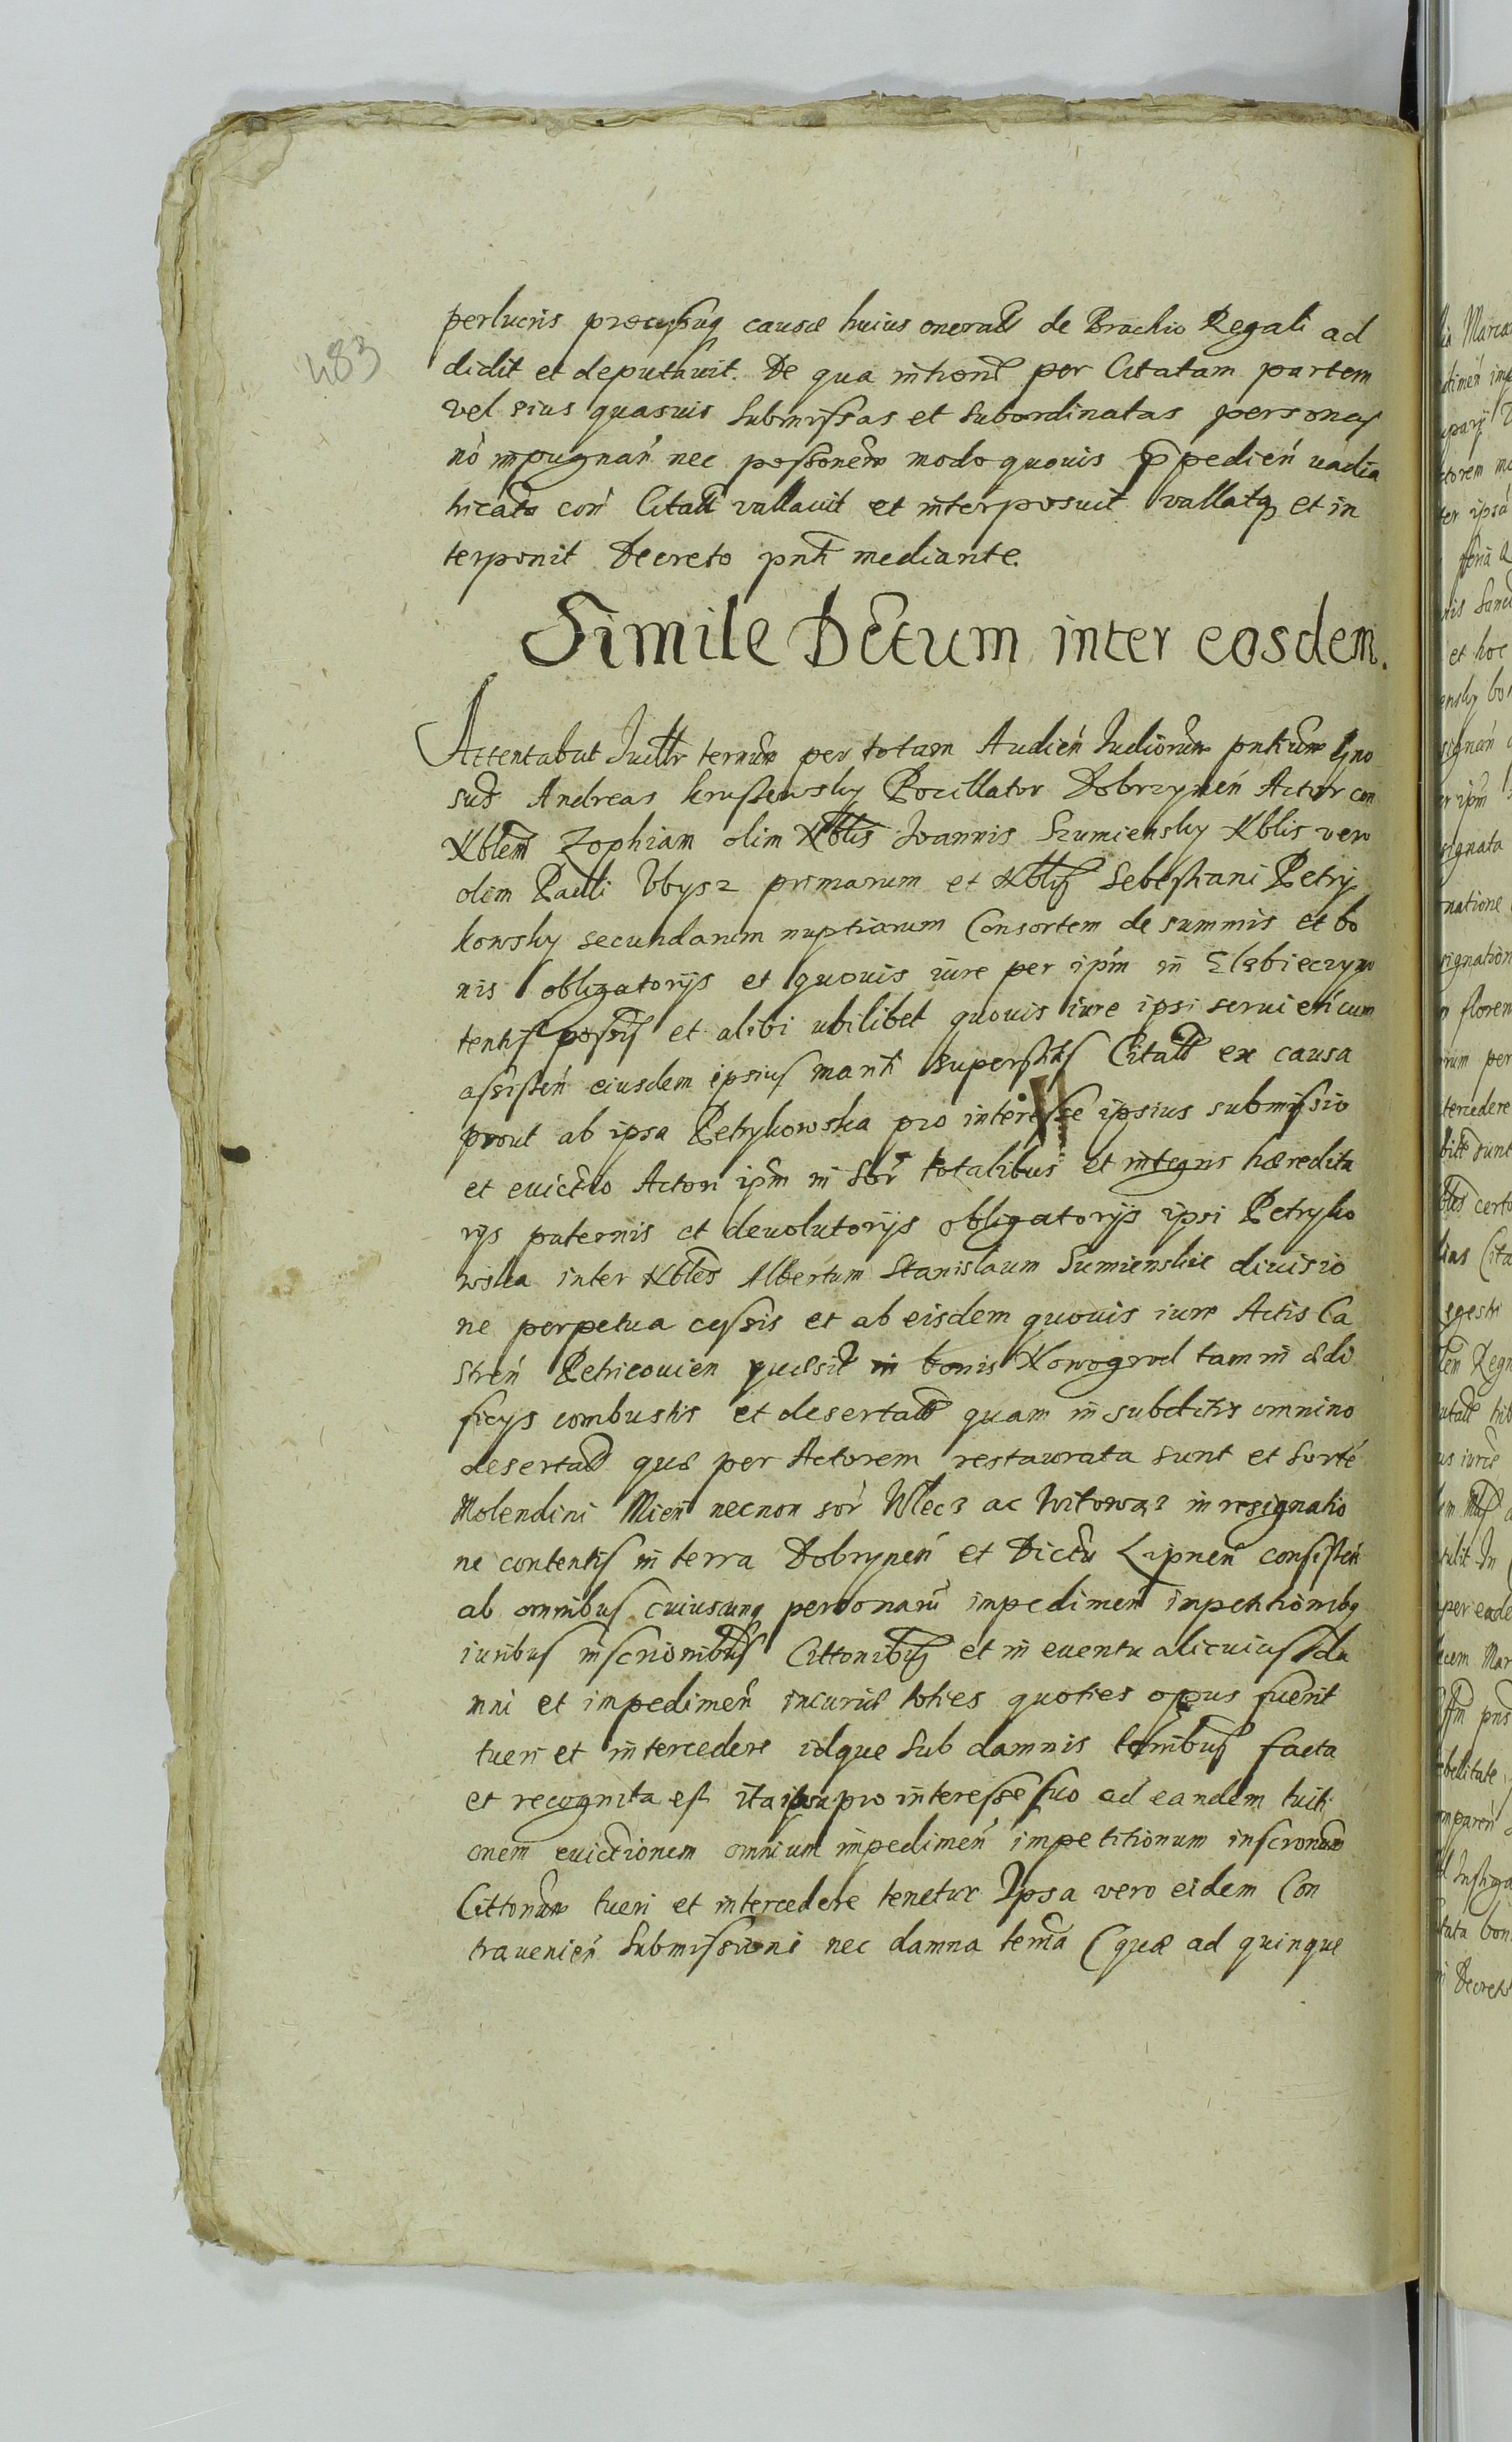 483
perlucris processuq causæ huius oneratt de Brachio Regali ad
didit et deputauit. De qua per Citatam partem
vel eius quasuis submissas et subordinatas personas
nò impugnań nec modo quouis ꝑpedień uadia
con Citatt vallauit et interposuit vallatq et in
terponit Decreto pnti mediante.
Simile Dćtum inter eosdem.
Attentabat ternum per totam Audień Judiorum pntium Gno
sus Andreas Krussewsky Pocillator Dobrzynen Actor con
Nblem Zophiam olim Nblis Joannis Szumiensky Nblis vero
olim Pauli Vbysz primarum et Nblis Sebestiani Petry
kowsky secundarum nuptiarum Consortem de summis et bo
nis obligatorijs et quouis iure per ipm in
tentis possis et alibi ubilibet quouis iure ipsi seruień cum
assisteń eiusdem ipsius mariti superstitis Citatt ex causa
prout ab ipsa Petrykowska pro interesse ipsius submissio
et euictio Actori ipm in totalibus et integris hæredita
rijs paternis et deuolutorijs obligatorijs ipsi Petryko
wska inter Nbles Albertum Stanislaum Sumienskie diuisio
ne perpetua cessis et ab eisdem quouis iure Actis Ca
streń Petricouien quæsit in bonis Nowogrod tam in ædi
ficijs combustis et desertatt quam in subditis omnino
desertatt quæ per Actorem restaurata sunt et sorte
Molendini Mień necnon ac Witowąz in resignatio
ne contentis in terra Dobrynen et Lipnen consisteń
ab omnibus cuiuscunq personarū impedimen impetitionibq
iuribus inscrionibus Cittonibus et in euentu alicuius da
mni et impedimen incuriæ toties quoties opus fuerit
tueri et intercedere idque sub damnis ternibus facta
et recognita est ita ipsa pro interesse suo ad eandem tuiti
onem euictionem omnium impedimen impetitionum inscronum
Cittonum tueri et intercedere tenetur Ipsa vero eidem Con
traueniēn submissioni nec damna (quæ ad quinque